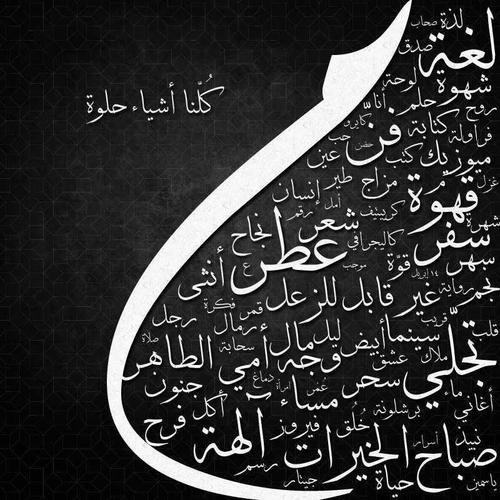 كُلّنا أشياء حلوة
لذة صحاب
لغة
صدق
شهوة لوحة
حلم أنا
روح
كتابة كايرو
فن
فراولة
حب
ميوزيك كتب حضن عين
غزل
قهوة مزاج طير إنسان
كريسبف أمل رقم
شهرة
سفر شعر نجاح
كاليجرافي عطر
سهر قوة موجب ع أنثى
١٤ إبريل
نجم رواية غير قابل للزعل
قمر فكرة
رجل
قريب
قلت سينما أبيض ليل رمال
سحابة صلاة
تجلّي ملاك عشق وجه أمي الطاهر
مال
دماغ
ماء سحر عُمْر امرأة جنون
أغاني
برشلونة مساء أكل فرح
خُلق فيروز آلهة
نبيذ أسرار
صباح الخيرات رسم
ياسمين حياة جيتار